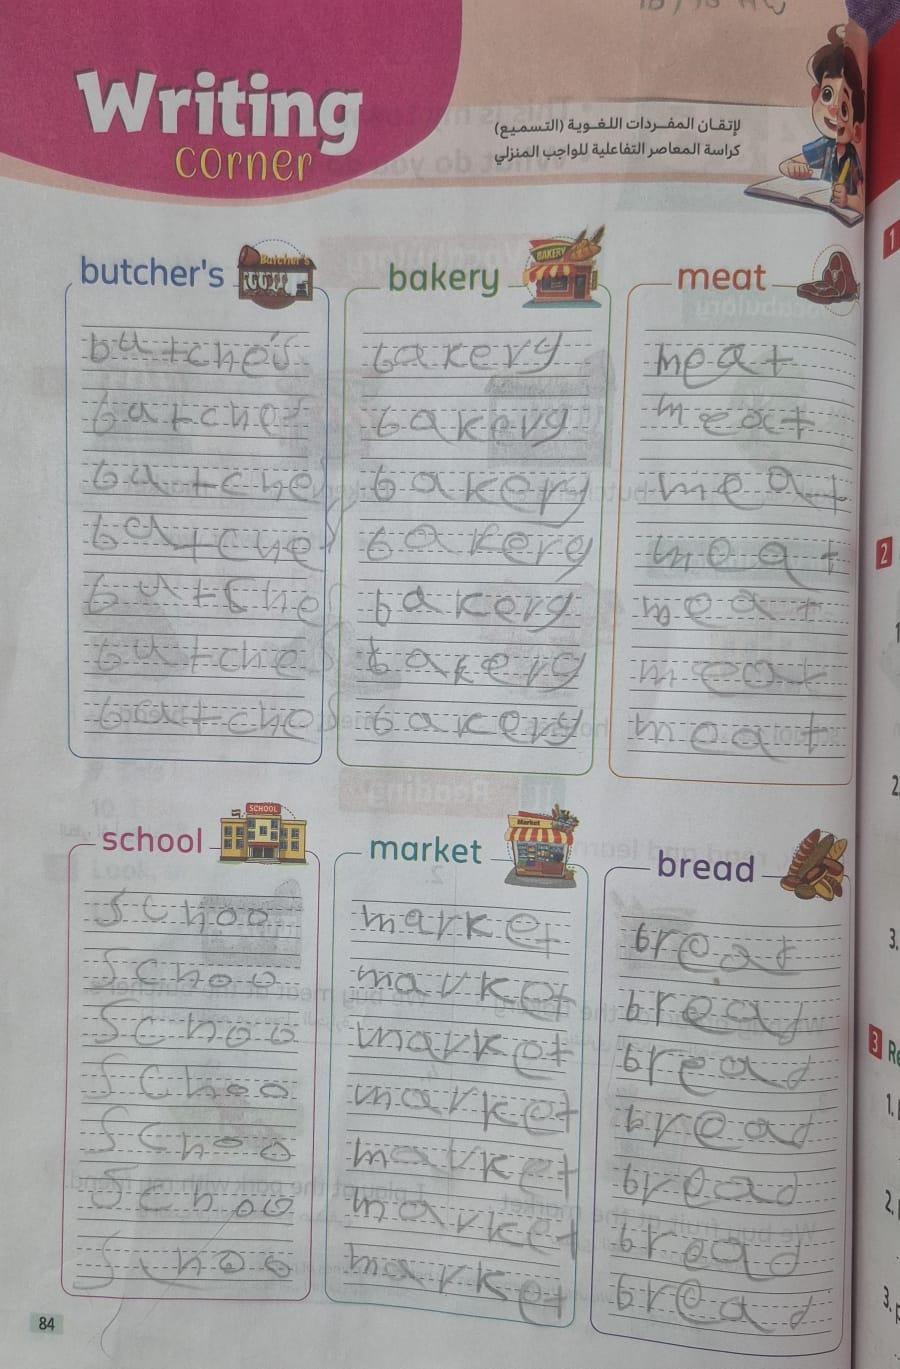 Writing
corner
لإتقـان المفـردات اللغـوية (التسميع)
كراسة المعاصر التفاعلية للواجب المنزلي
butcher's
Butcher's
butche's
butcher
butcher
butcher
butcher
butcher
butcher
bakery
BAKERY
bakery
bakery
bakery
bakery
bakery
bakery
bakery
meat
meat
meat
meat
meat
meat
meat
meat
school
SCHOOL
schoo
schoo
schoo
schoo
schoo
schoo
schoo
market
Market
market
market
market
market
market
market
market
bread
bread
bread
bread
bread
bread
bread
bread
84
1
2
1
2.
3.
3
Re
1.
2.
3.